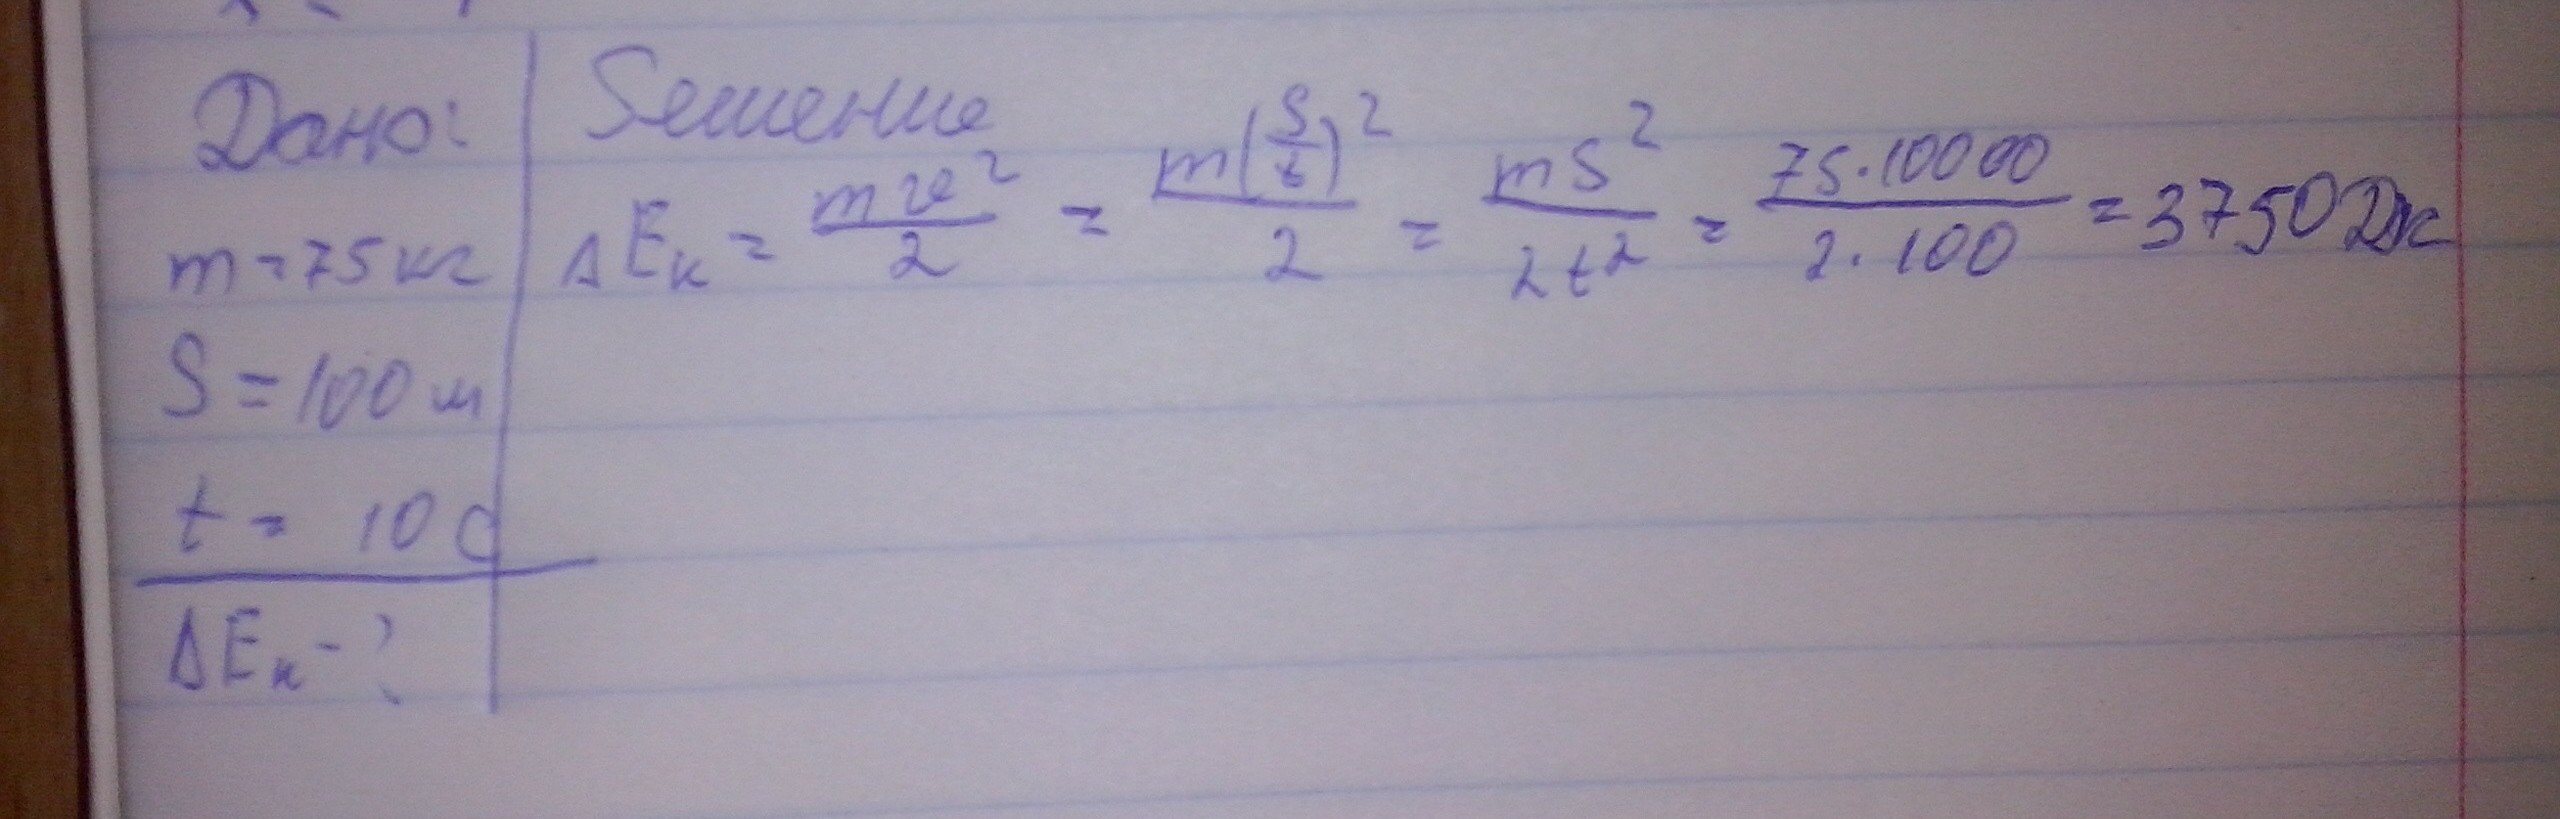 Дано:
m = 75 кг
S = 100 м
t = 10 с
ΔEк - ?
Sешение
ΔEк = mv²/2 = m(S/t)²/2 = mS²/2t² = 75·10000/2·100 = 3750 Дж